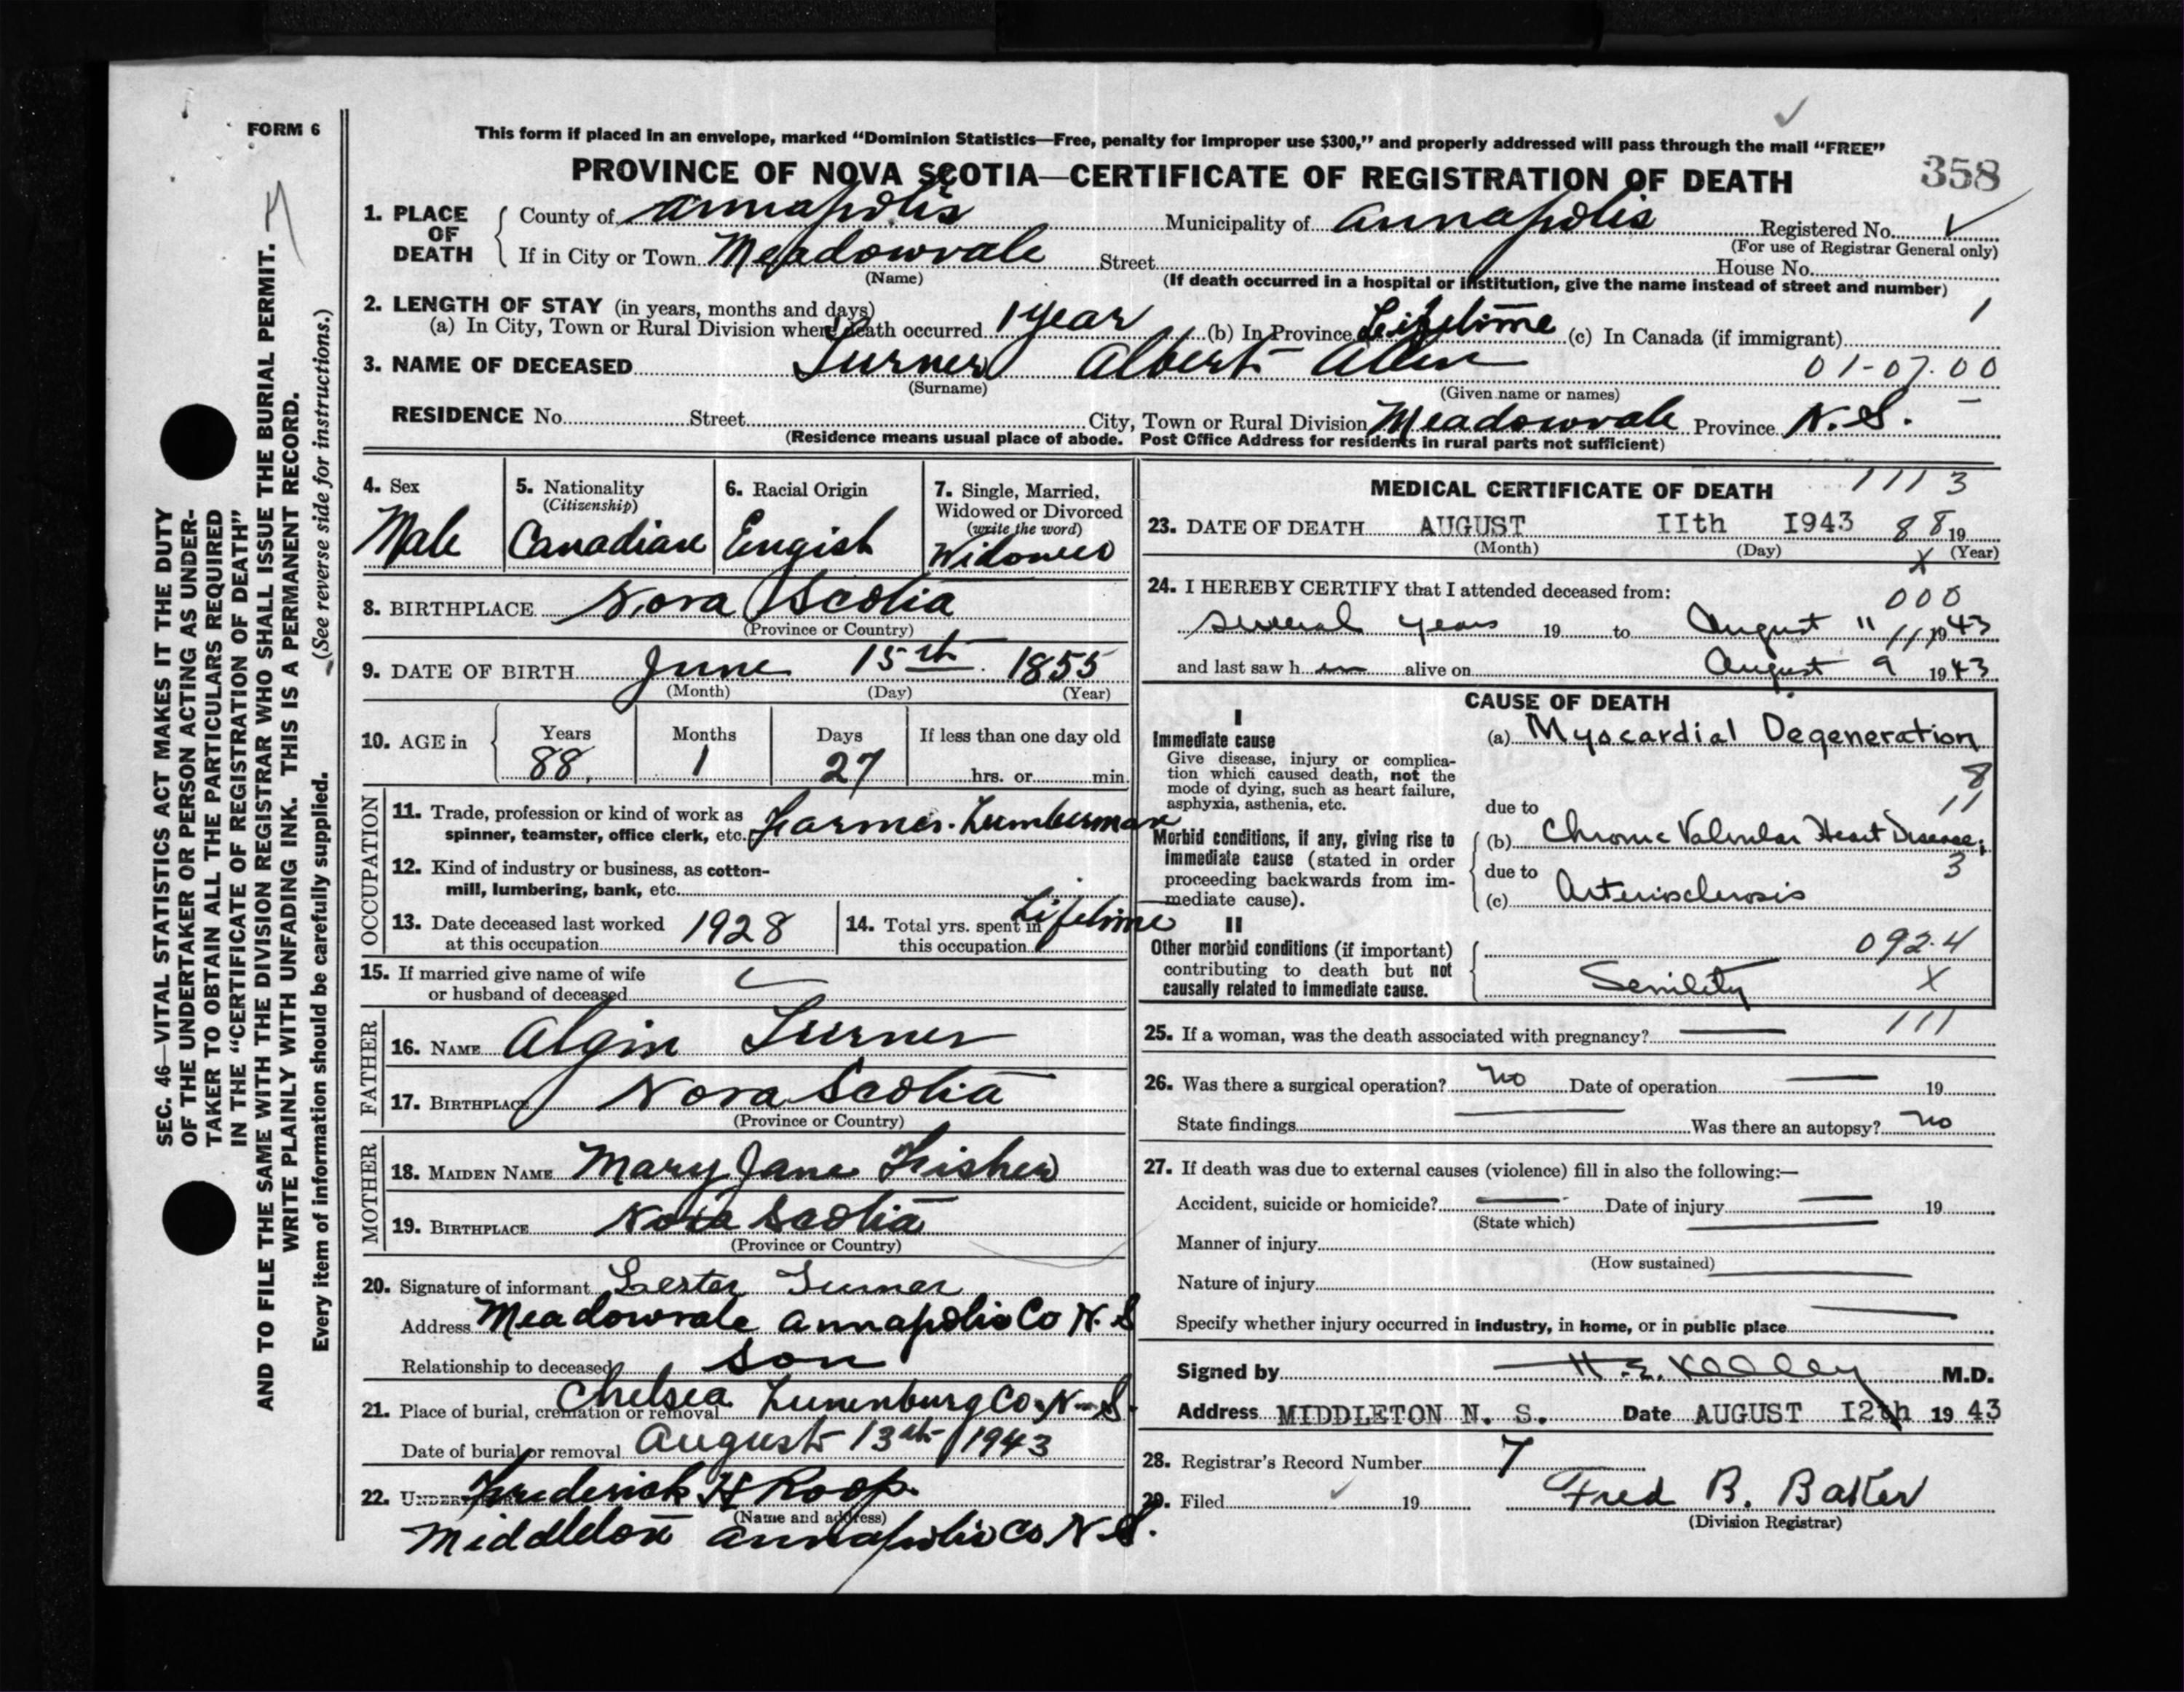 FORM 6
This form if placed in an envelope, marked “Dominion Statistics—Free, penalty for improper use $300,” and properly addressed will pass through the mail “FREE”
PROVINCE OF NOVA SCOTIA—CERTIFICATE OF REGISTRATION OF DEATH
358
1. PLACE OF DEATH
County of Annapolis Municipality of Annapolis Registered No.
(For use of Registrar General only)
If in City or Town Meadowvale Street House No.
(Name)
(If death occurred in a hospital or institution, give the name instead of street and number)
2. LENGTH OF STAY (in years, months and days)
(a) In City, Town or Rural Division where death occurred 1 year (b) In Province Lifetime (c) In Canada (if immigrant) 1
3. NAME OF DECEASED Turner Albert Allen 01-07.00
(Surname) (Given name or names)
RESIDENCE No. Street City, Town or Rural Division Meadowvale Province N.S.
(Residence means usual place of abode. Post Office Address for residents in rural parts not sufficient)
4. Sex
Male
5. Nationality
(Citizenship)
Canadian
6. Racial Origin
Engish
7. Single, Married,
Widowed or Divorced
(write the word)
Widower
8. BIRTHPLACE Nova Scotia
(Province or Country)
9. DATE OF BIRTH June 15th 1855
(Month) (Day) (Year)
10. AGE in
Years Months Days If less than one day old
88 1 27 hrs. or min.
OCCUPATION
11. Trade, profession or kind of work as
spinner, teamster, office clerk, etc. Farmer. Lumberman
12. Kind of industry or business, as cotton-
mill, lumbering, bank, etc.
13. Date deceased last worked
at this occupation 1928
14. Total yrs. spent in
this occupation Lifetime
15. If married give name of wife
or husband of deceased
FATHER
16. NAME Algin Turner
17. BIRTHPLACE Nova Scotia
(Province or Country)
MOTHER
18. MAIDEN NAME Mary Jane Fisher
19. BIRTHPLACE Nova Scotia
(Province or Country)
20. Signature of informant Lester Turner
Address Meadowvale Annapolis Co N.S
Relationship to deceased Son
21. Place of burial, cremation or removal Chelsea Lunenburg Co. N.S.
Date of burial or removal August 13th 1943
22. UNDERTAKER Frederick H Roop.
(Name and address)
Middleton Annapolis Co N.S.
MEDICAL CERTIFICATE OF DEATH 1113
23. DATE OF DEATH AUGUST IIth I943 88 19
(Month) (Day) (Year)
X
24. I HEREBY CERTIFY that I attended deceased from:
000
several years 19 to August 11 1943
and last saw h im alive on August 9 1943
CAUSE OF DEATH
I
Immediate cause
Give disease, injury or complica-
tion which caused death, not the
mode of dying, such as heart failure,
asphyxia, asthenia, etc.
(a) Myocardial Degeneration
8
11
due to
Morbid conditions, if any, giving rise to
immediate cause (stated in order
proceeding backwards from im-
mediate cause).
(b) Chronic Valvular Heart Disease;
due to 3
(c) Arteriosclerosis
II
Other morbid conditions (if important)
contributing to death but not
causally related to immediate cause.
092.4
Senility X
25. If a woman, was the death associated with pregnancy? 111
26. Was there a surgical operation? no Date of operation 19
State findings Was there an autopsy? no
27. If death was due to external causes (violence) fill in also the following:—
Accident, suicide or homicide? Date of injury 19
(State which)
Manner of injury
(How sustained)
Nature of injury
Specify whether injury occurred in industry, in home, or in public place
Signed by H. E. Kelley M.D.
Address MIDDLETON N. S. Date AUGUST I2th 1943
28. Registrar's Record Number 7
29. Filed 19 Fred B. Baker
(Division Registrar)
SEC. 46—VITAL STATISTICS ACT MAKES IT THE DUTY
OF THE UNDERTAKER OR PERSON ACTING AS UNDER-
TAKER TO OBTAIN ALL THE PARTICULARS REQUIRED
IN THE “CERTIFICATE OF REGISTRATION OF DEATH”
AND TO FILE THE SAME WITH THE DIVISION REGISTRAR WHO SHALL ISSUE THE BURIAL PERMIT.
WRITE PLAINLY WITH UNFADING INK. THIS IS A PERMANENT RECORD.
Every item of information should be carefully supplied. (See reverse side for instructions.)